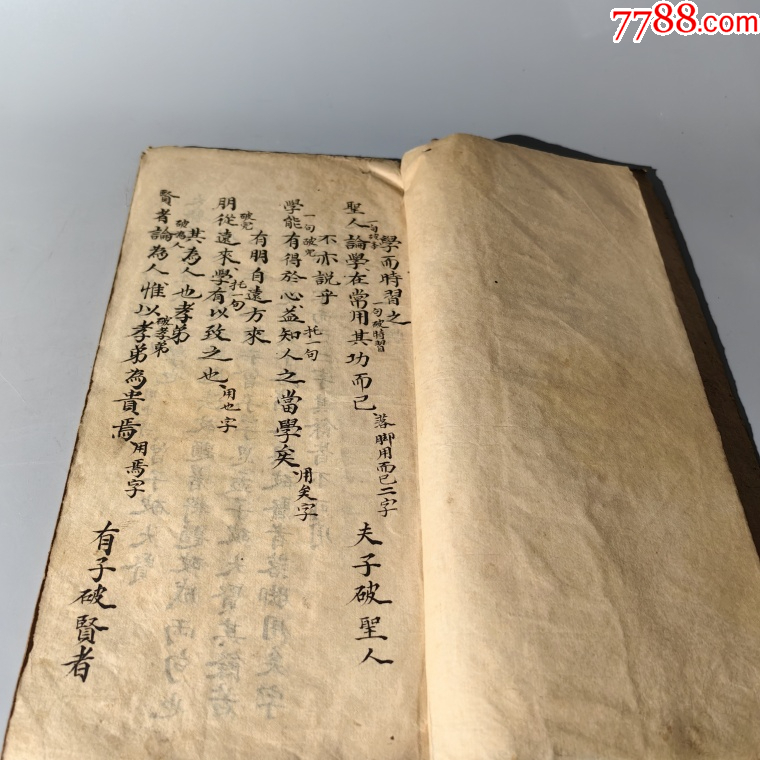 7788.com
學而時習之
聖人論學在常用其功而已
一句破時習
落脚用而已二字
夫子破聖人
不亦説乎
一句破完
托一句
學能有得於心益知人之當學矣
用矣字
有朋自遠方來
破完
托一句
朋從遠來學有以致之也
用也字
其為人也孝弟
破為人
破孝弟
賢者論為人惟以孝弟為貴焉
用焉字
有子破賢者